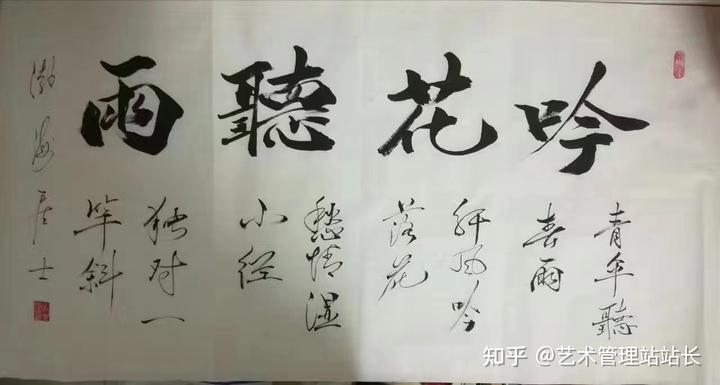 吟花聽雨
青伞聽
春雨
纤风吟
落花
愁情湿
小径
独对一
竿斜
渤海居士
知乎 @艺术管理站站长